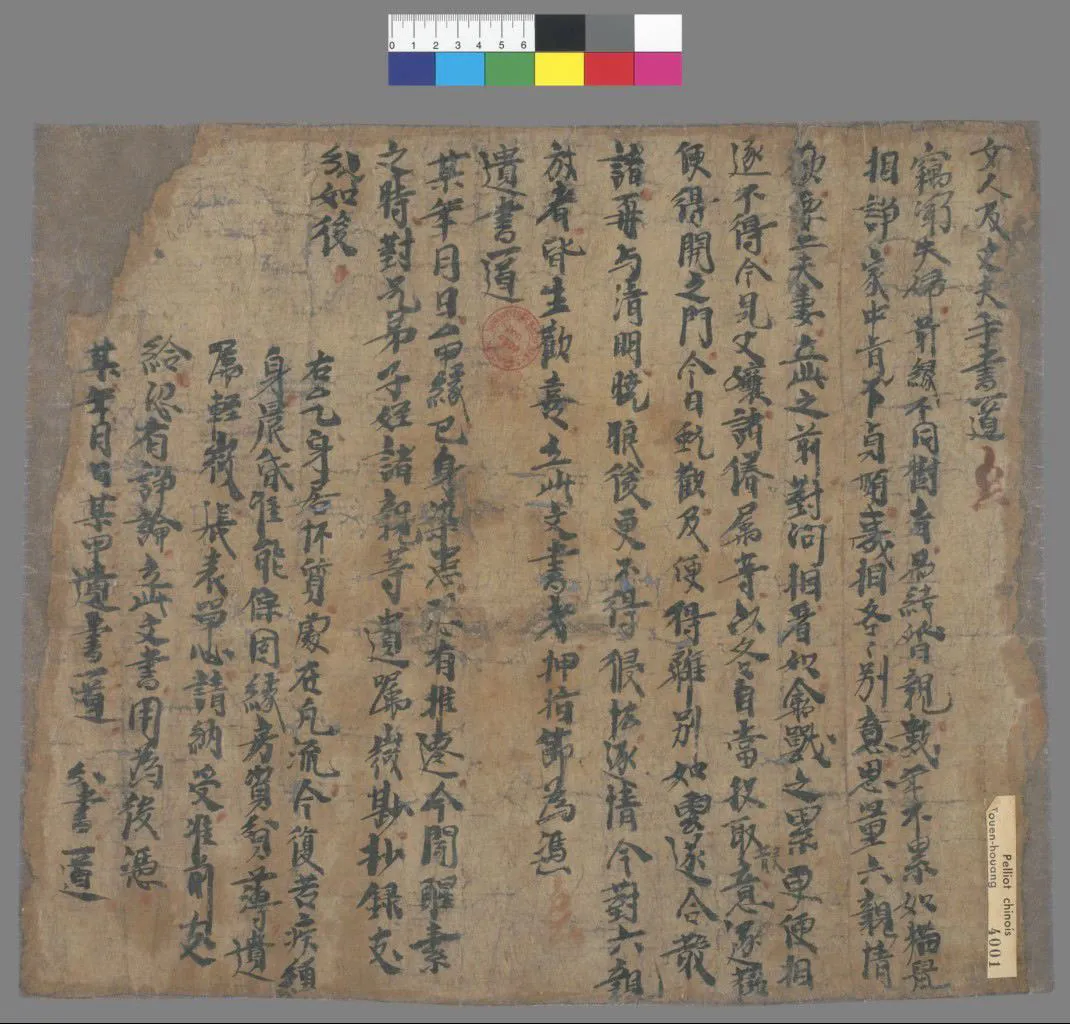 女人及丈夫手書一道
竊聞夫婦前緣不同樹者易結婚親數年不累如猫鼠
相諍家中肯不貞順義相各〻別意思量六親情
歡要二夫妻立此之前對問相看如禽獸之累更便相
逐不得今見父孃諸眷屬等以各自當投取散意逐歡
便得開之門今日甑歡及便得離別如雲遂合散
諸再与清明曉眼後更不得侵拔逐情今對六親
放者皆生歡喜立此文書者押指節為憑
遺書一道
某年月日厶甲緣已身染患恐有推遷今閒醒素
之時對兄弟子姪諸親等遺囑微尠抄錄支
分如後
右厶乙身若怀質處在凡流今復苦疾纏
身晨昏難能保同緣房資貧薄遺
屬輕微悵表單心請納受准前支
給恐有諍論立此文書用為後憑
某年月日某甲遺書一道
分書一道
0 1 2 3 4 5 6
Pelliot chinois
Touen-houang
4001